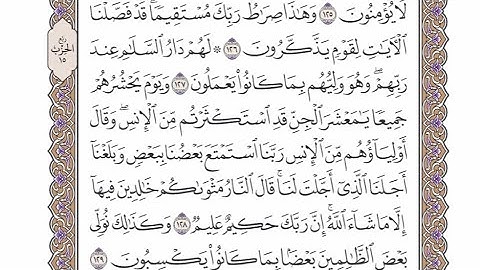 لَا يُؤْمِنُونَ ١٢٥ وَهَٰذَا صِرَٰطُ رَبِّكَ مُسْتَقِيمًا ۗ قَدْ فَصَّلْنَا
ٱلْءَايَٰتِ لِقَوْمٍ يَذَّكَّرُونَ ١٢٦ ۞ لَهُمْ دَارُ ٱلسَّلَٰمِ عِندَ
رَبِّهِمْ ۖ وَهُوَ وَلِيُّهُم بِمَا كَانُوا۟ يَعْمَلُونَ ١٢٧ وَيَوْمَ يَحْشُرُهُمْ
جَمِيعًا يَٰمَعْشَرَ ٱلْجِنِّ قَدِ ٱسْتَكْثَرْتُم مِّنَ ٱلْإِنسِ ۖ وَقَالَ
أَوْلِيَآؤُهُم مِّنَ ٱلْإِنسِ رَبَّنَا ٱسْتَمْتَعَ بَعْضُنَا بِبَعْضٍ وَبَلَغْنَآ
أَجَلَنَا ٱلَّذِىٓ أَجَّلْتَ لَنَا ۚ قَالَ ٱلنَّارُ مَثْوَىٰكُمْ خَٰلِدِينَ فِيهَآ
إِلَّا مَا شَآءَ ٱللَّهُ ۗ إِنَّ رَبَّكَ حَكِيمٌ عَلِيمٌ ١٢٨ وَكَذَٰلِكَ نُوَلِّى
بَعْضَ ٱلظَّٰلِمِينَ بَعْضًۢا بِمَا كَانُوا۟ يَكْسِبُونَ ١٢٩
رُبع
الحِزْب
١٥